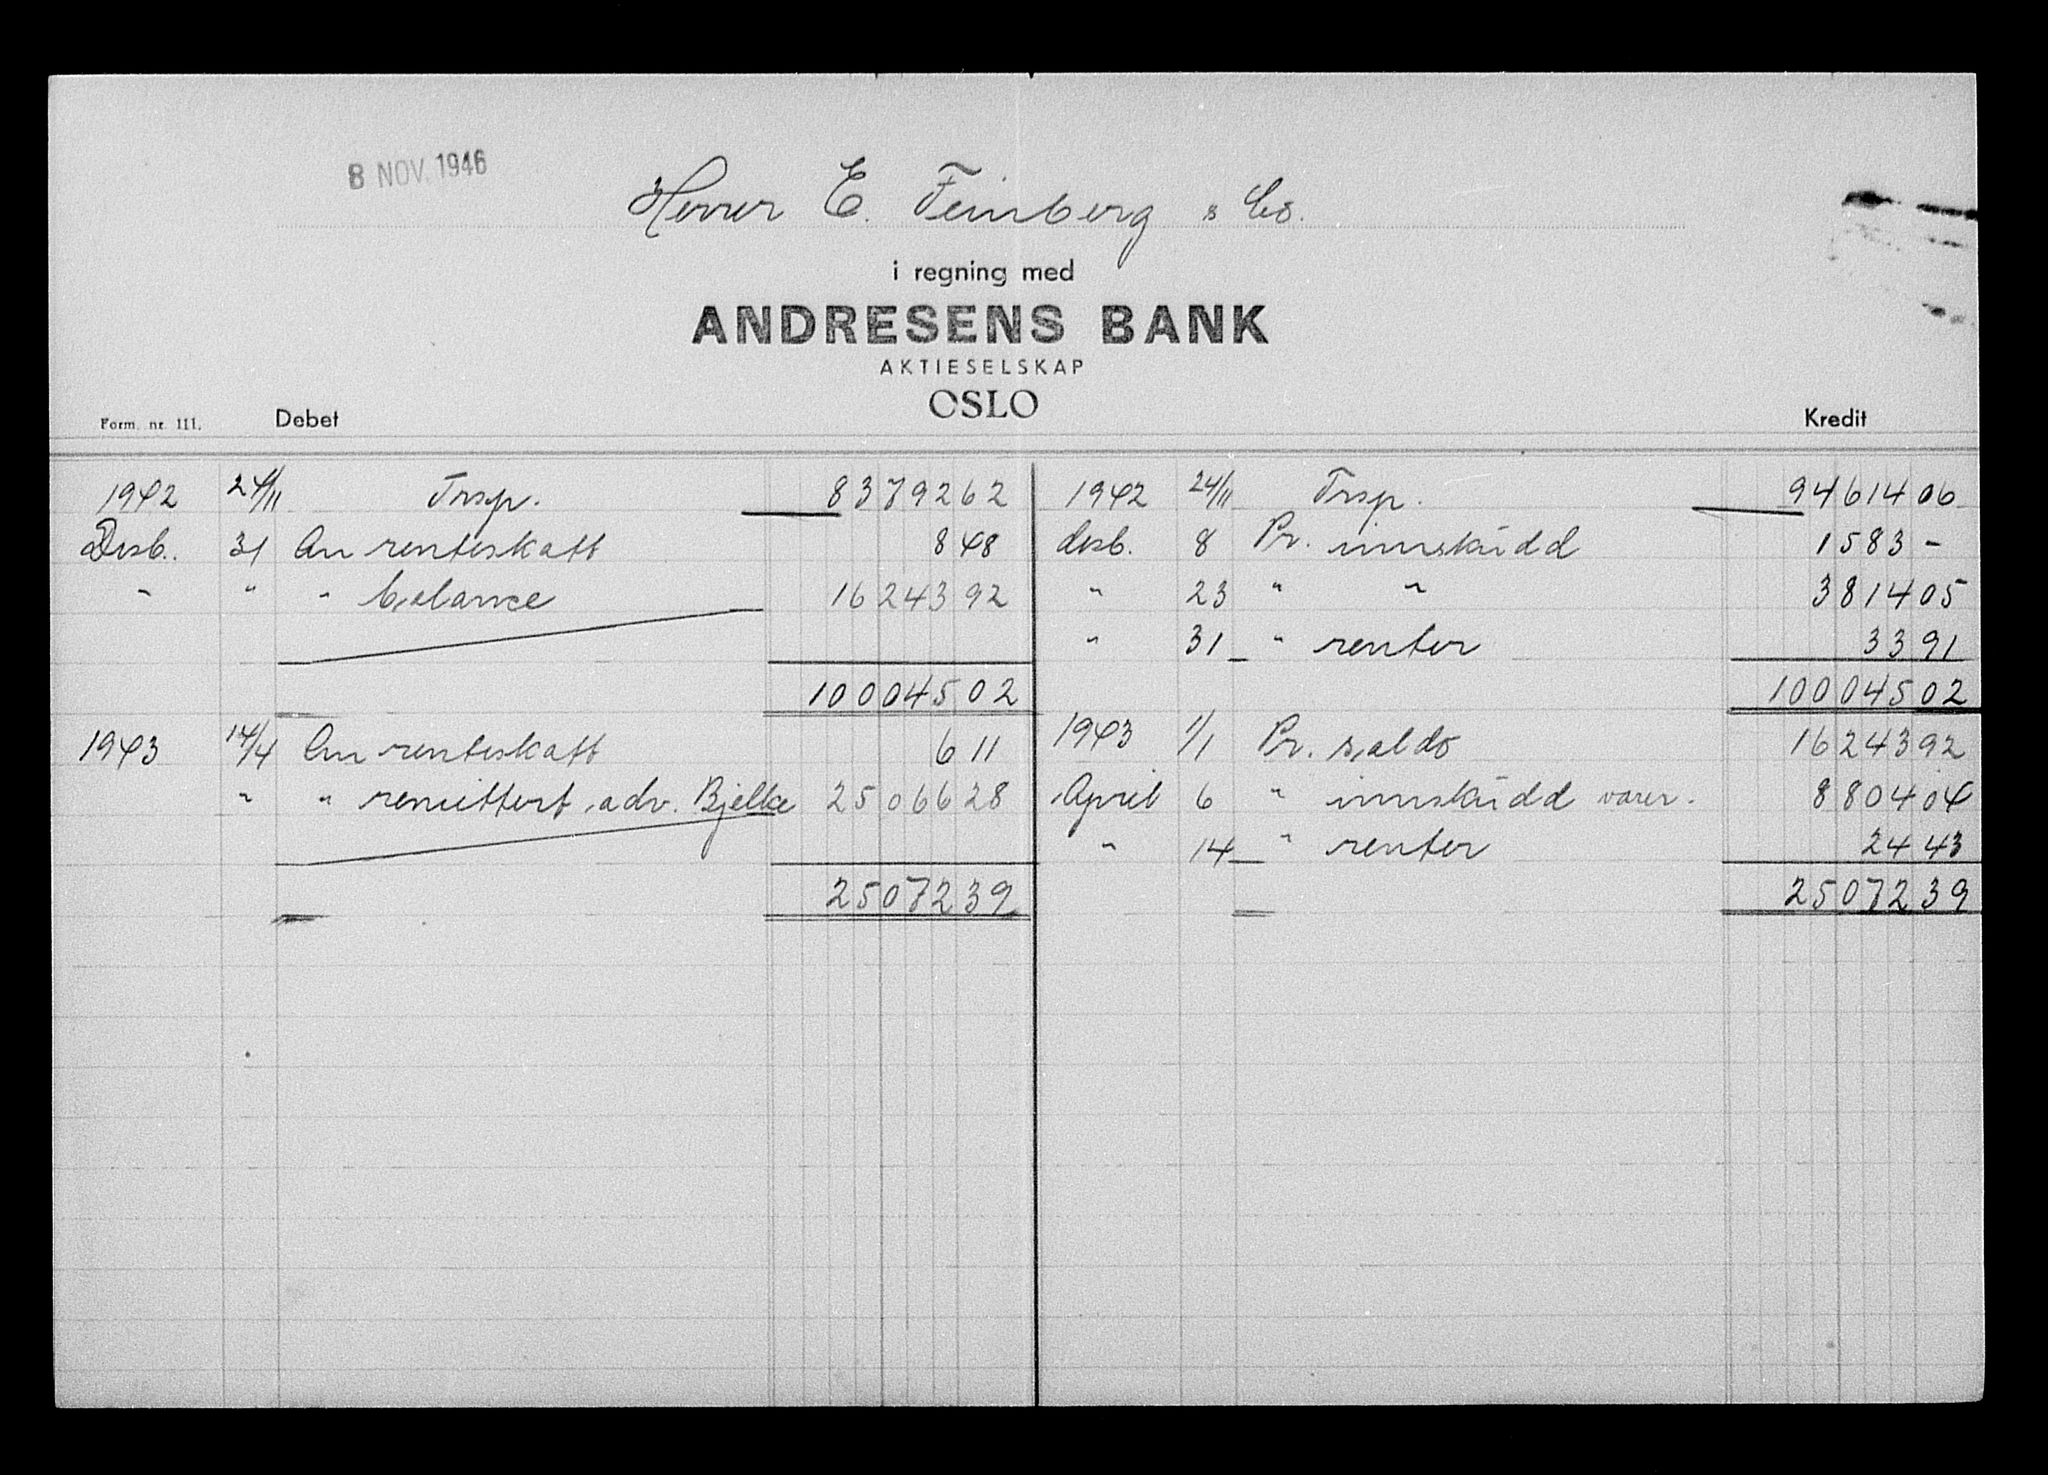 8 NOV. 1946
Herrer E. Feinberg & Co.
i regning med
ANDRESENS BANK
AKTIESELSKAP
OSLO
Form. nr. 111. Debet Kredit
1942 24/11 Trsp. 83792 62 1942 24/11 Trsp. 94614 06
Desb. 31 An renteskatt 8 48 desb. 8 Pr. innskudd 1583 -
" " " balance 16243 92 " 23 " " 3814 05
" 31 " renter 33 91
100045 02 100045 02
1943 14/4 An renteskatt 6 11 1943 1/1 Pr. saldo 16243 92
" " remittert adv. Bjelke 25066 28 April 6 " innskudd varer. 8804 04
" 14 " renter 24 43
25072 39 25072 39